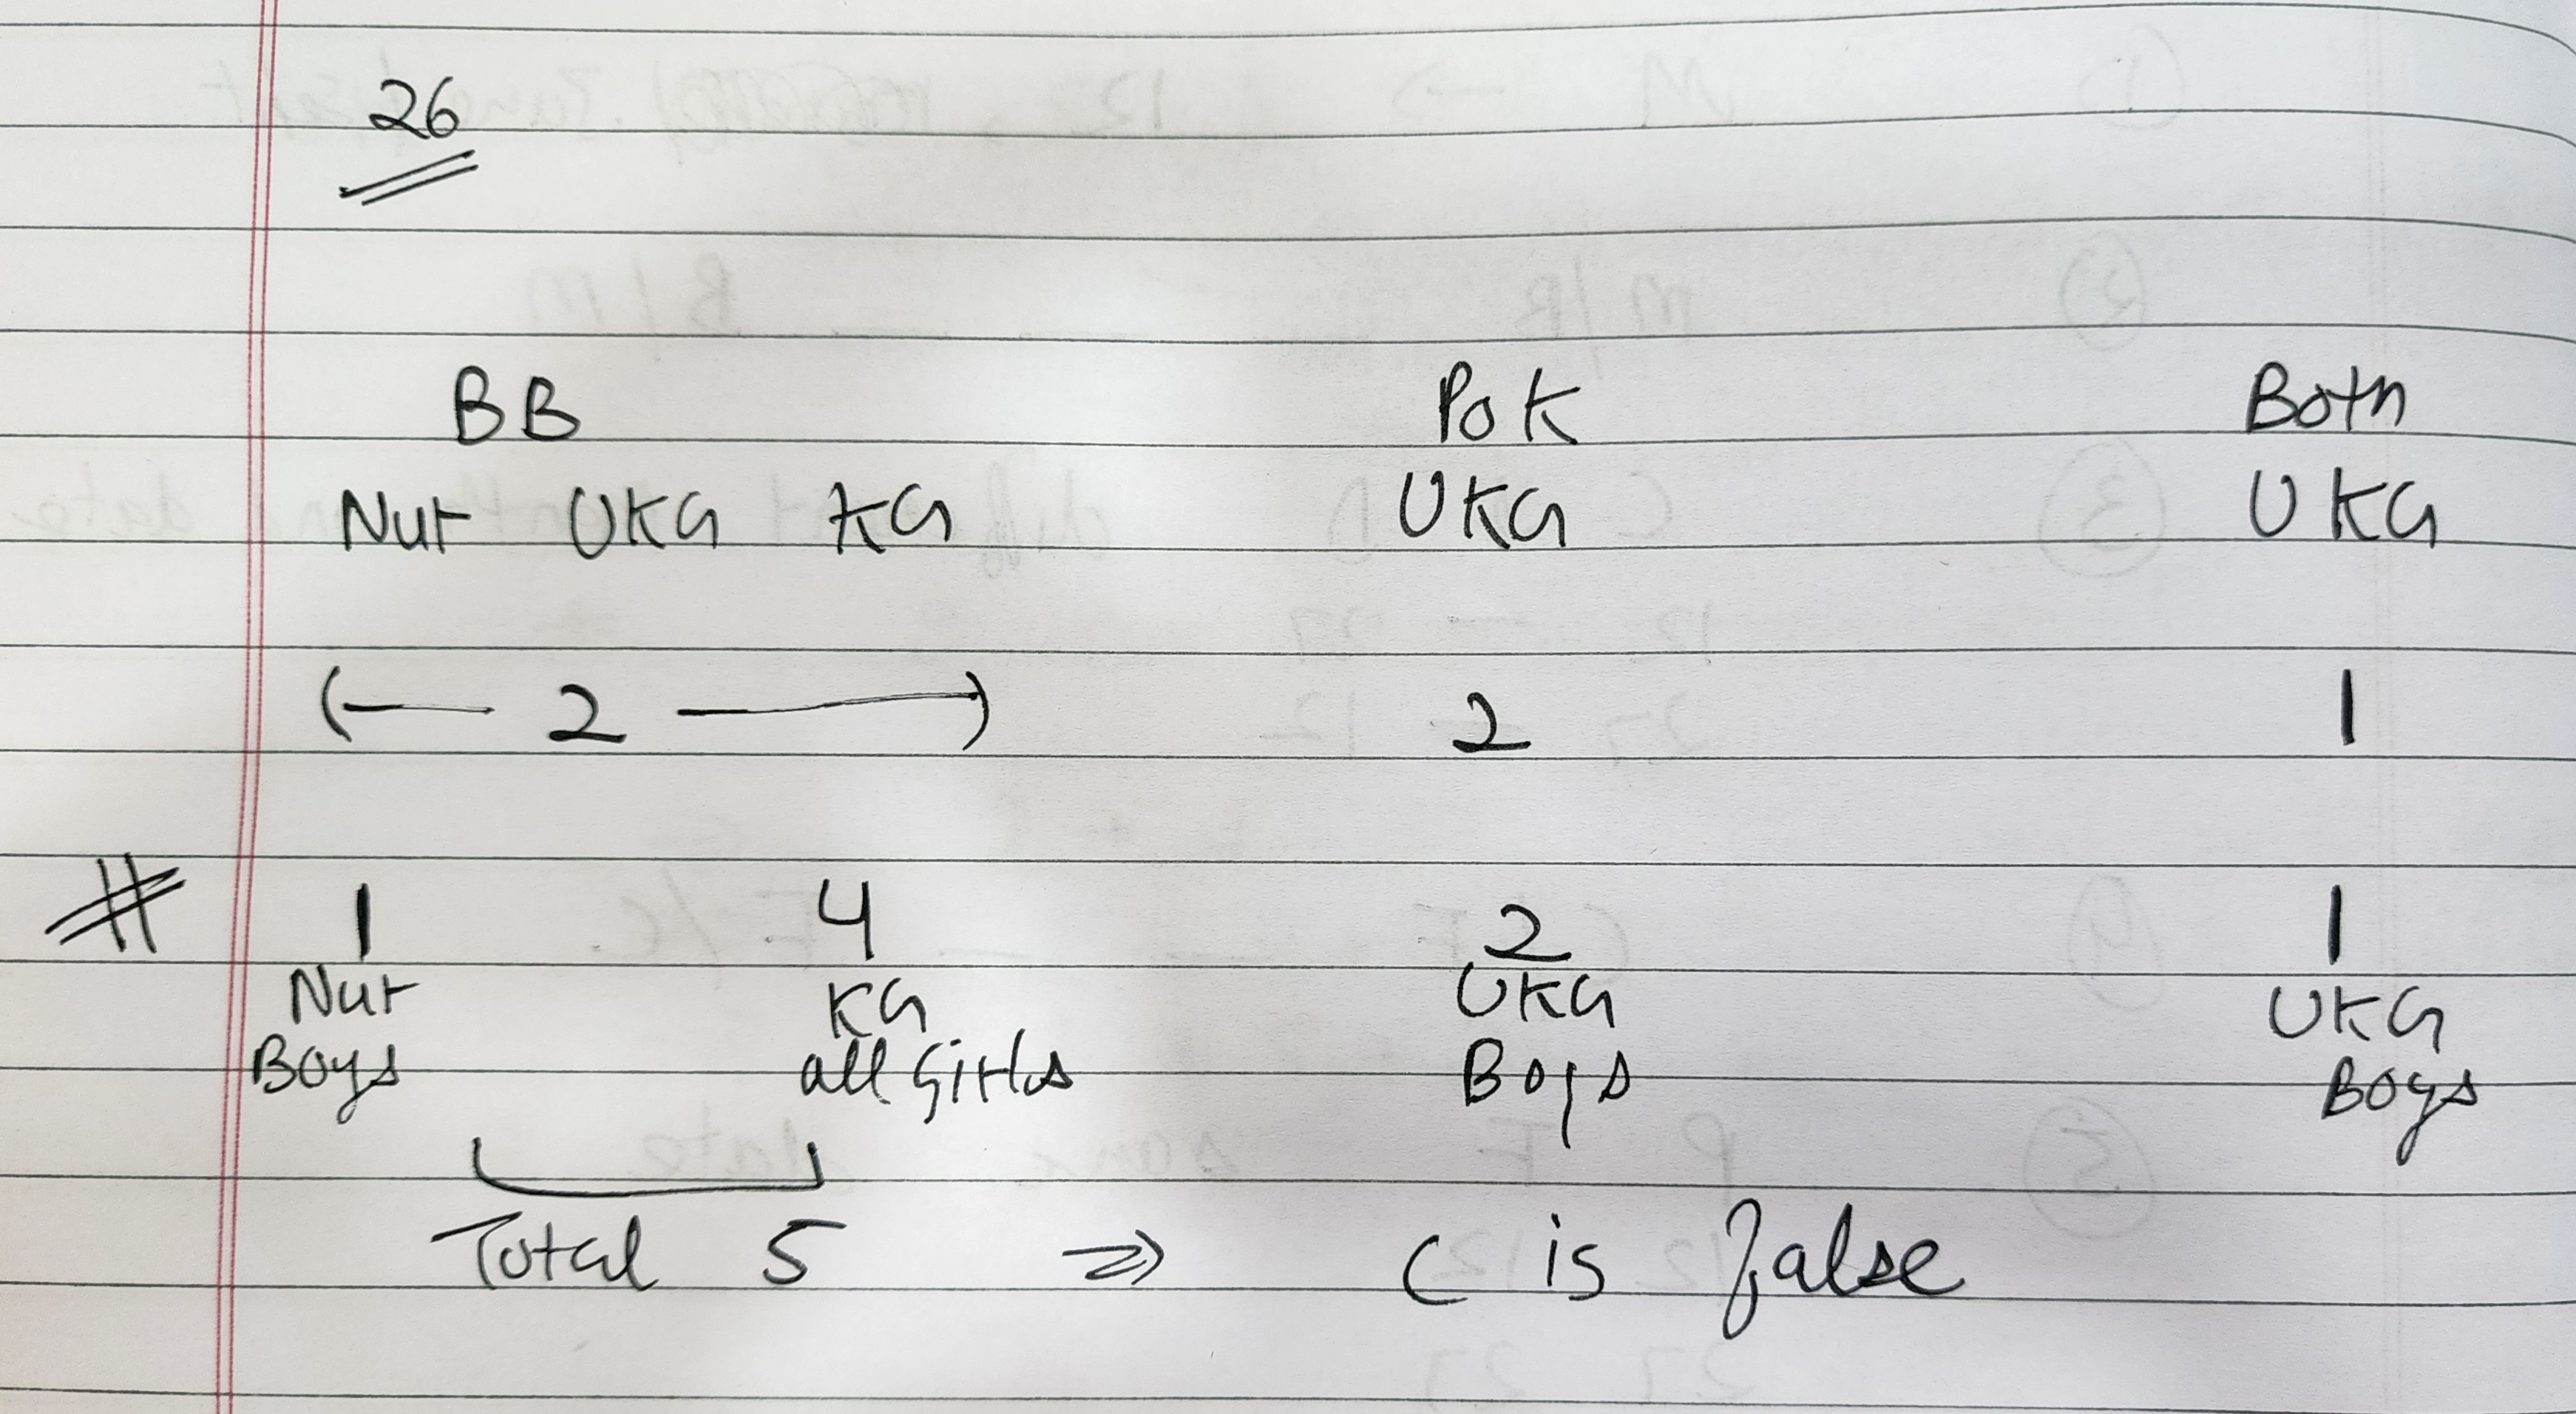 26
BB PoK Both
Nur UKG KG UKG UKG
(— 2 —) 2 1
# 1 4 2 1
Nur KG UKG UKG
Boys all Girls Boys Boys
Total 5 ⇒ C is false